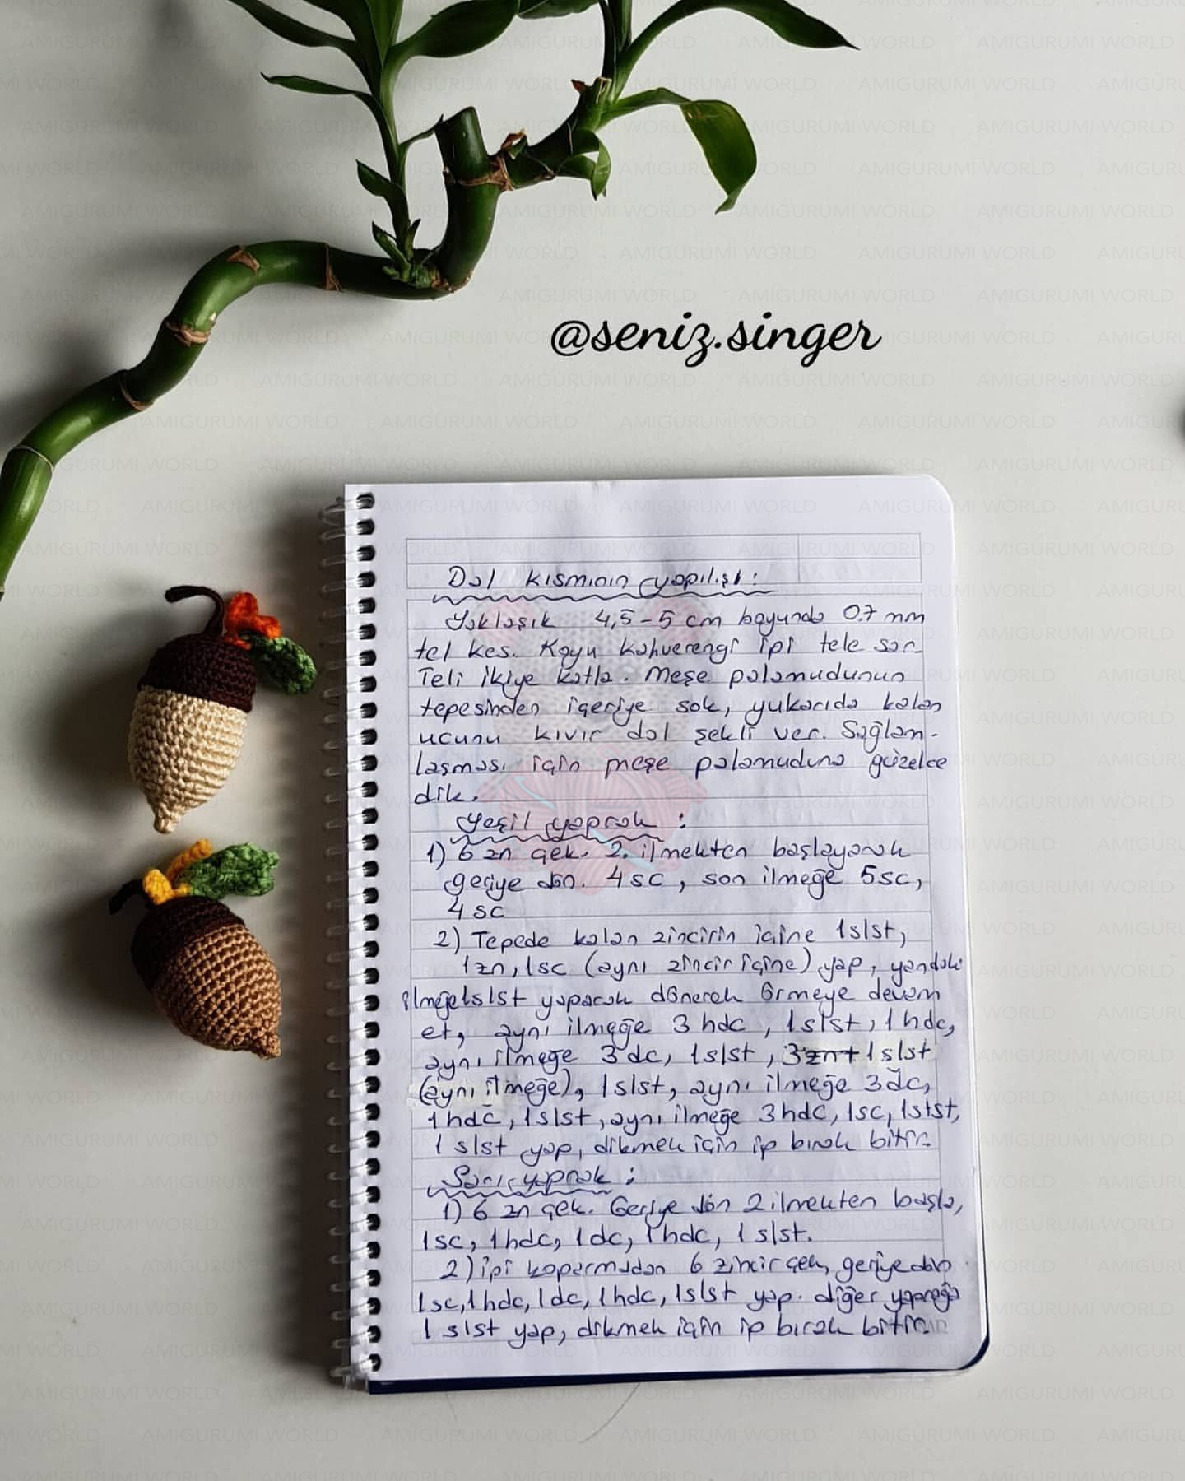 @seniz.singer
Dal kısmının yapılışı:
Yaklaşık 4,5-5 cm boyunda 0.7 mm
tel kes. Koyu kahverengi ipi tele sar.
Teli ikiye katla. Meşe palamudunun
tepesinden içeriye sok, yukarıda kalan
ucunu kıvır dal şekli ver. Sağlam-
laşması için meşe palamuduna güzelce
dik.
Yeşil yaprak:
1) 6 zn çek. 2. ilmekten başlayarak
geriye dön. 4sc, son ilmeğe 5sc,
4sc
2) Tepede kalan zincirin içine 1slst,
1zn, 1sc (aynı zincir içine) yap, yandaki
ilmeğe1slst yaparak dönerek örmeye devam
et, aynı ilmeğe 3 hdc, 1slst, 1hdc,
aynı ilmeğe 3dc, 1slst, 3zn+1slst
(aynı ilmeğe), 1slst, aynı ilmeğe 3dc,
1hdc, 1slst, aynı ilmeğe 3hdc, 1sc, 1slst,
1 slst yap, dikmek için ip bırak bitir.
Sarı yaprak:
1) 6 zn çek. Geriye dön 2 ilmekten başla,
1sc, 1hdc, 1dc, 1hdc, 1 slst.
2) ipi koparmadan 6 zincir çek, geriye dön
1sc, 1hdc, 1dc, 1hdc, 1slst yap. diğer yaprağa
1 slst yap, dikmek için ip bırak bitir.
AMIGURUMI WORLD